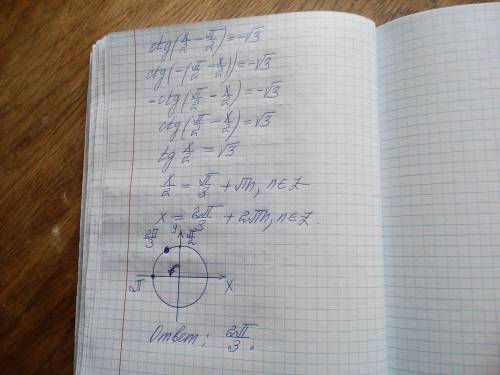 ctg(x/2 - π/2) = -√3
ctg(-(π/2 - x/2)) = -√3
-ctg(π/2 - x/2) = -√3
ctg(π/2 - x/2) = √3
tg x/2 = √3
x/2 = π/3 + πn, n∈Z
x = 2π/3 + 2πn, n∈Z.
2π/3 y π/2
π x
Ответ: 2π/3.